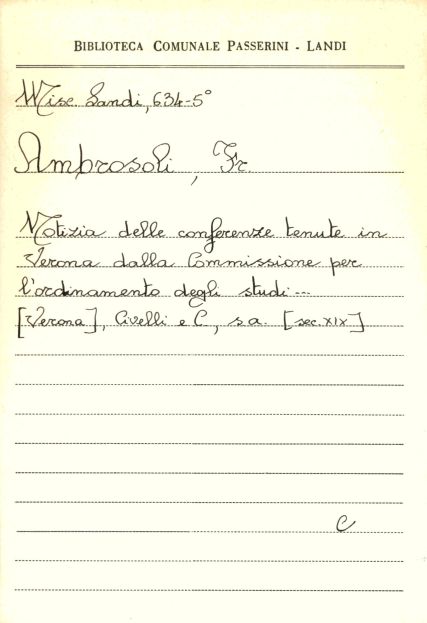 BIBLIOTECA COMUNALE PASSERINI - LANDI
Misc. Landi, 634-5°
Ambrosoli, Fr.
Notizia delle conferenze tenute in
Verona dalla Commissione per
l'ordinamento degli studi...
[Verona], Civelli e C., s.a. [sec. XIX]
C